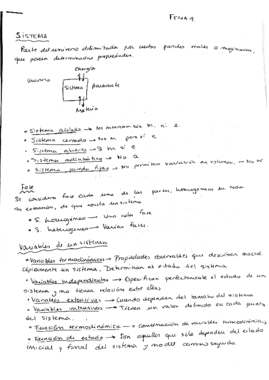 TEMA 4
SISTEMA
Parte del universo delimitada por ciertas paredes reales o imaginarias,
que posee determinadas propiedades.
Energía
Universo
Sistema
Ambiente
Materia
• Sistema aislado → No intercambia m. ni e.
• Sistema cerrado → No m. pero sí e
• Sistema abierto → Sí m sí e
• Sistema adiabático → No Q
• Sistema paredes fijas → No permiten variación de volumen,
Fase
Se considera fase cada una de las partes, homogéneas en toda
su extensión, de que consta un sistema
• S. homogéneo → Una sola fase
• S. heterogéneo → Varias fases.
Variables de un sistema
• Variables termodinámicas → Propiedades observables que describen macros
cópicamente un sistema. Determinan el estado del sistema
• Variables independientes → Especifican perfectamente el estado de un
sistema y no tienen relación entre ellas
• Variables extensivas → Cuando dependen del tamaño del sistema
• Variables intensivas → Tienen un valor definido en cada punto
del sistema.
• Función termodinámica → Combinación de variables termodinámicas,
• Función de estado → Son aquellas que solo dependen del estado
inicial y final del sistema y no del camino seguido.